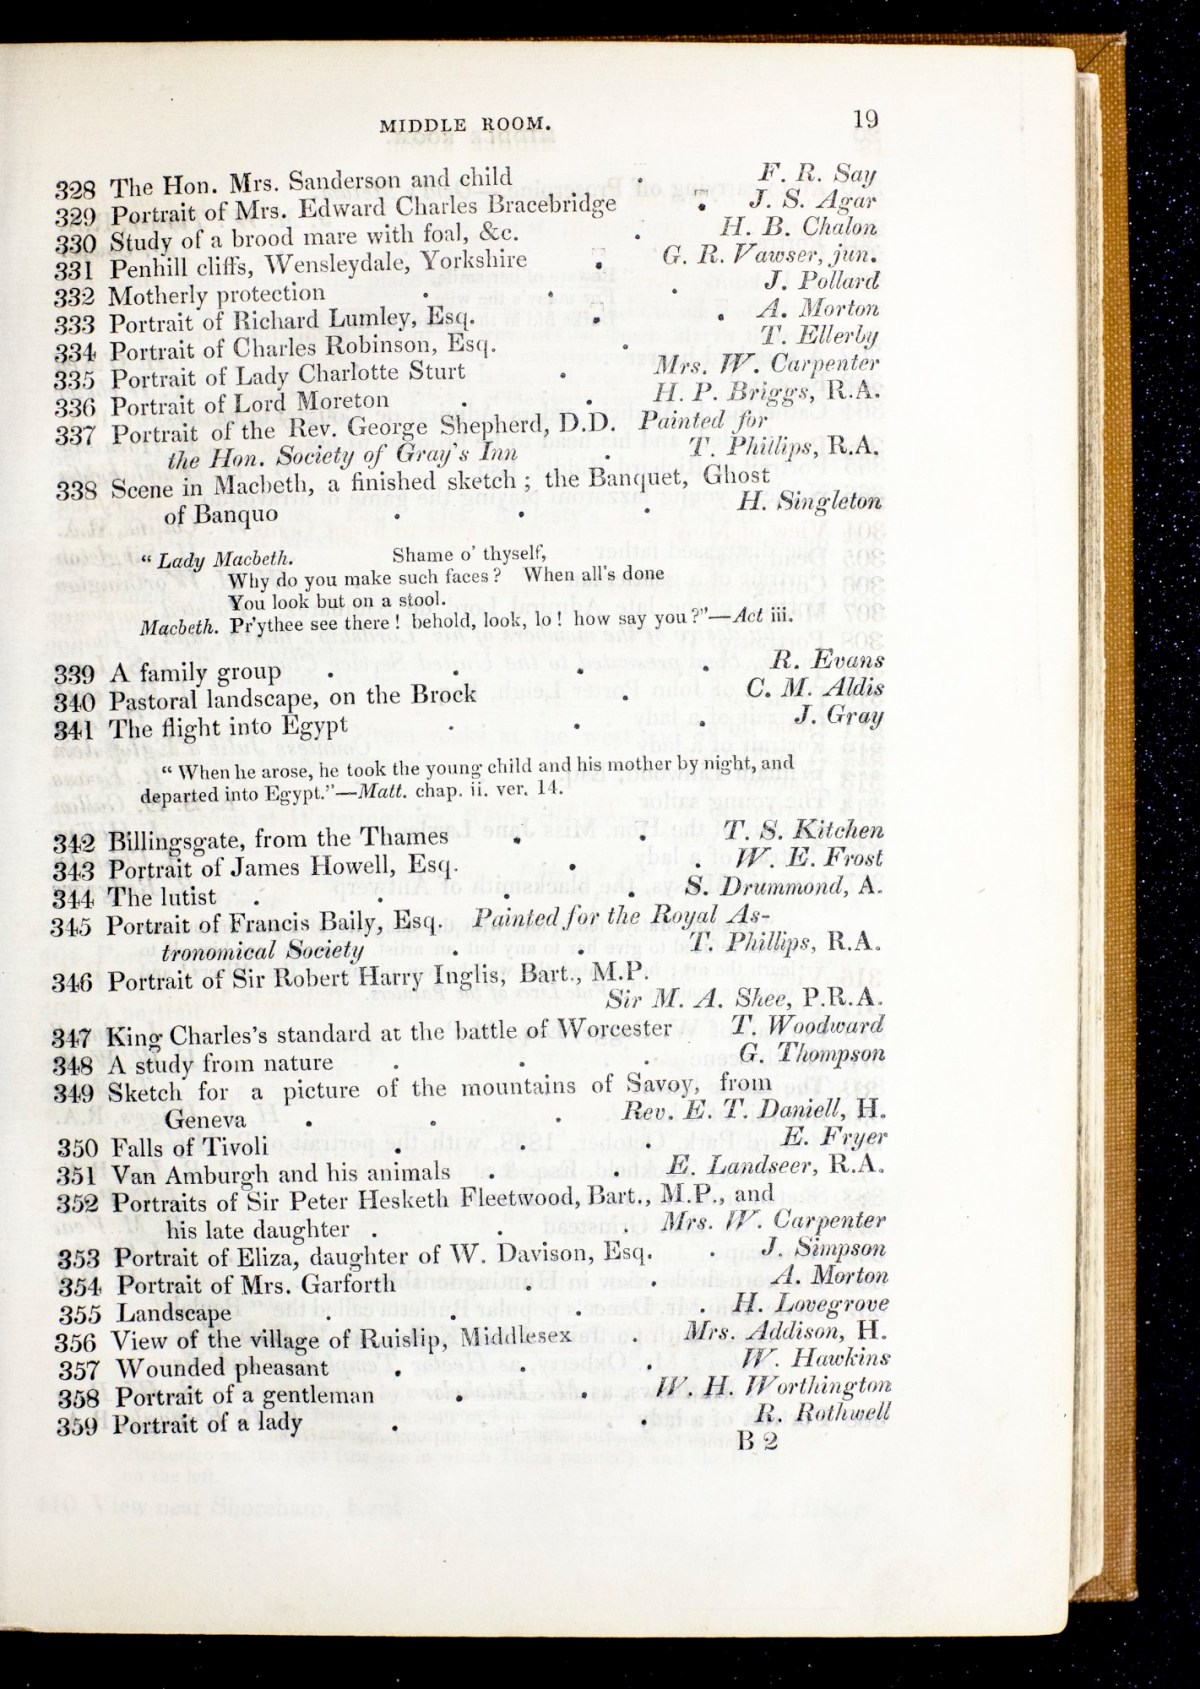 MIDDLE ROOM. 19
328 The Hon. Mrs. Sanderson and child . F. R. Say
329 Portrait of Mrs. Edward Charles Bracebridge . J. S. Agar
330 Study of a brood mare with foal, &c. . H. B. Chalon
331 Penhill cliffs, Wensleydale, Yorkshire . G. R. Vawser, jun.
332 Motherly protection . . . J. Pollard
333 Portrait of Richard Lumley, Esq. . . A. Morton
334 Portrait of Charles Robinson, Esq. . T. Ellerby
335 Portrait of Lady Charlotte Sturt . Mrs. W. Carpenter
336 Portrait of Lord Moreton . . H. P. Briggs, R.A.
337 Portrait of the Rev. George Shepherd, D.D. Painted for
the Hon. Society of Gray's Inn . T. Phillips, R.A.
338 Scene in Macbeth, a finished sketch ; the Banquet, Ghost
of Banquo . . . H. Singleton
" Lady Macbeth. Shame o' thyself,
Why do you make such faces ? When all's done
You look but on a stool.
Macbeth. Pr'ythee see there ! behold, look, lo ! how say you ?"—Act iii.
339 A family group . . . . R. Evans
340 Pastoral landscape, on the Brock . C. M. Aldis
341 The flight into Egypt . . . J. Gray
" When he arose, he took the young child and his mother by night, and
departed into Egypt."—Matt. chap. ii. ver. 14.
342 Billingsgate, from the Thames . . T. S. Kitchen
343 Portrait of James Howell, Esq. . . W. E. Frost
344 The lutist . . . . S. Drummond, A.
345 Portrait of Francis Baily, Esq. Painted for the Royal As-
tronomical Society . . T. Phillips, R.A.
346 Portrait of Sir Robert Harry Inglis, Bart., M.P.
Sir M. A. Shee, P.R.A.
347 King Charles's standard at the battle of Worcester T. Woodward
348 A study from nature . . . G. Thompson
349 Sketch for a picture of the mountains of Savoy, from
Geneva . . . Rev. E. T. Daniell, H.
350 Falls of Tivoli . . . E. Fryer
351 Van Amburgh and his animals . . E. Landseer, R.A.
352 Portraits of Sir Peter Hesketh Fleetwood, Bart., M.P., and
his late daughter . . . Mrs. W. Carpenter
353 Portrait of Eliza, daughter of W. Davison, Esq. . J. Simpson
354 Portrait of Mrs. Garforth . . A. Morton
355 Landscape . . . . H. Lovegrove
356 View of the village of Ruislip, Middlesex . Mrs. Addison, H.
357 Wounded pheasant . . . W. Hawkins
358 Portrait of a gentleman . . W. H. Worthington
359 Portrait of a lady . . . R. Rothwell
B 2